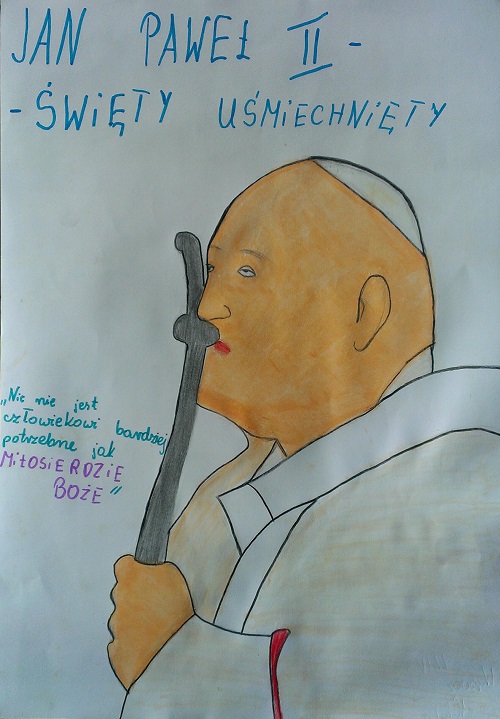 JAN PAWEŁ II -
- ŚWIĘTY UŚMIECHNIĘTY
„Nic nie jest
człowiekowi bardziej
potrzebne jak
MIŁOSIERDZIE
BOŻE”